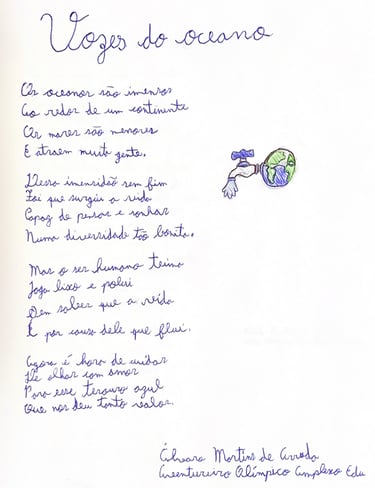 Vozes do oceano
Os oceanos são imensos
Ao redor de um continente
Os mares são menores
E atraem muita gente.
Dessa imensidão sem fim
Foi que surgiu a vida
Capaz de pensar e sonhar
Numa diversidade tão bonita.
Mas o ser humano teima
Joga lixo e polui
Sem saber que a vida
É por causa dele que flui.
Agora é hora de cuidar
De olhar com amor
Para esse tesouro azul
Que nos deu tanto valor.
Martins de Arruda
Olímpico Complexo Edu